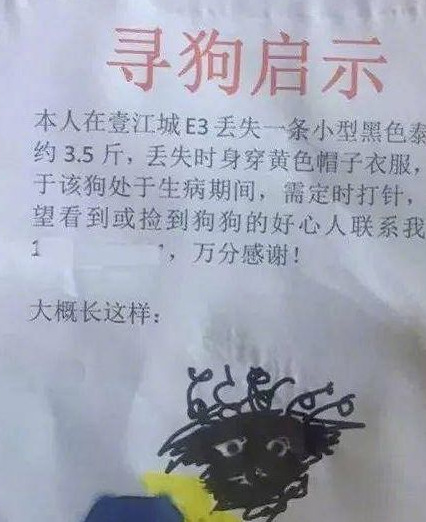 寻狗启示
本人在壹江城E3丢失一条小型黑色泰
约3.5斤，丢失时身穿黄色帽子衣服，
于该狗处于生病期间，需定时打针，
望看到或捡到狗狗的好心人联系我
1 ，万分感谢！
大概长这样：